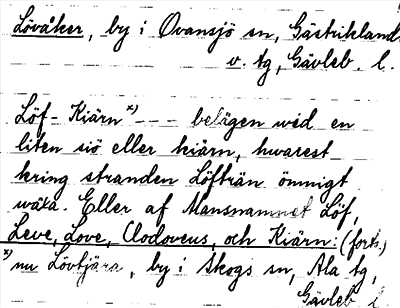 Lövåker, by i Ovansjö sn, Gästrikland
v. tg, Gävleb. l.
Löf-Kiärn x) --- belägen wid en
liten siö eller kiärn, hwarest
kring stranden Löfträn ömnigt
wäxa. Eller af Mansnamnet Löf,
Leve, Love, Clodoveus, och Kiärn: (forts.)
x) nu Lövtjära, by i Skogs sn, Ala tg,
Gävleb. l.